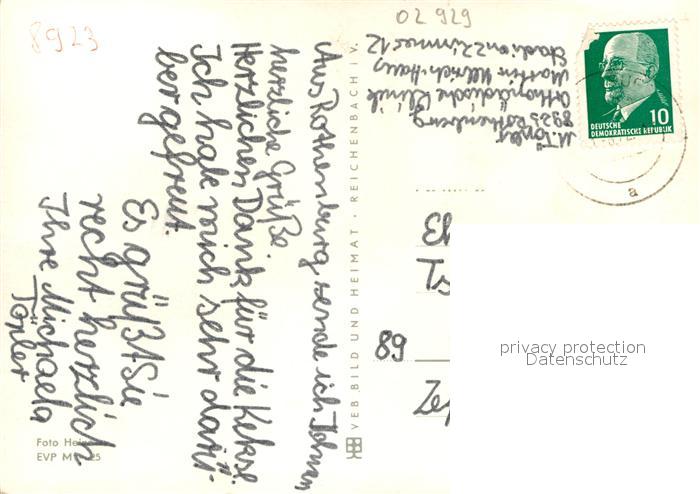 02 929
8923
M. Töpler
8925 Rothenburg
Orthopädische Klinik
Martin Ulbrich-Haus
Station 2 Zimmer 12
DEUTSCHE
DEMOKRATISCHE REPUBLIK
10
a
Aus Rothenburg sende ich Ihnen
herzliche Grüße.
Herzlichen Dank für die Kekse.
Ich hab mich sehr darü-
ber gefreut.
Es grüßt Sie
recht herzlich
Ihre Michaela
Töpler
VEB BILD UND HEIMAT · REICHENBACH I V.
89
privacy protection
Datenschutz
Foto
EVP M 25